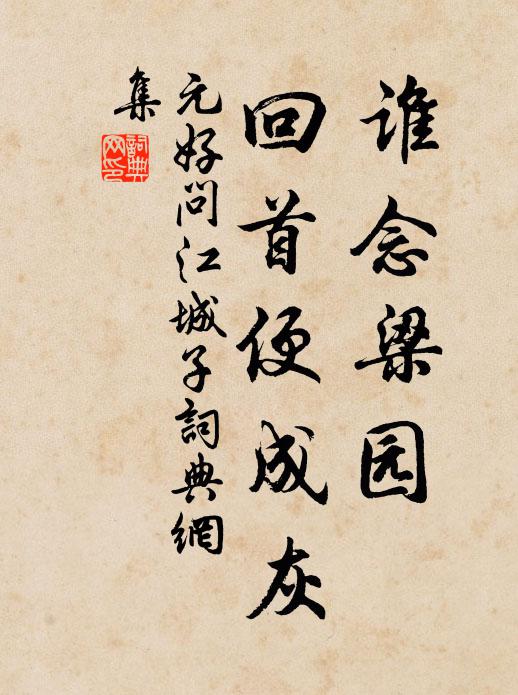 谁念梁园
回首便成灰
元好问江城子詞典網
集
詞典網印